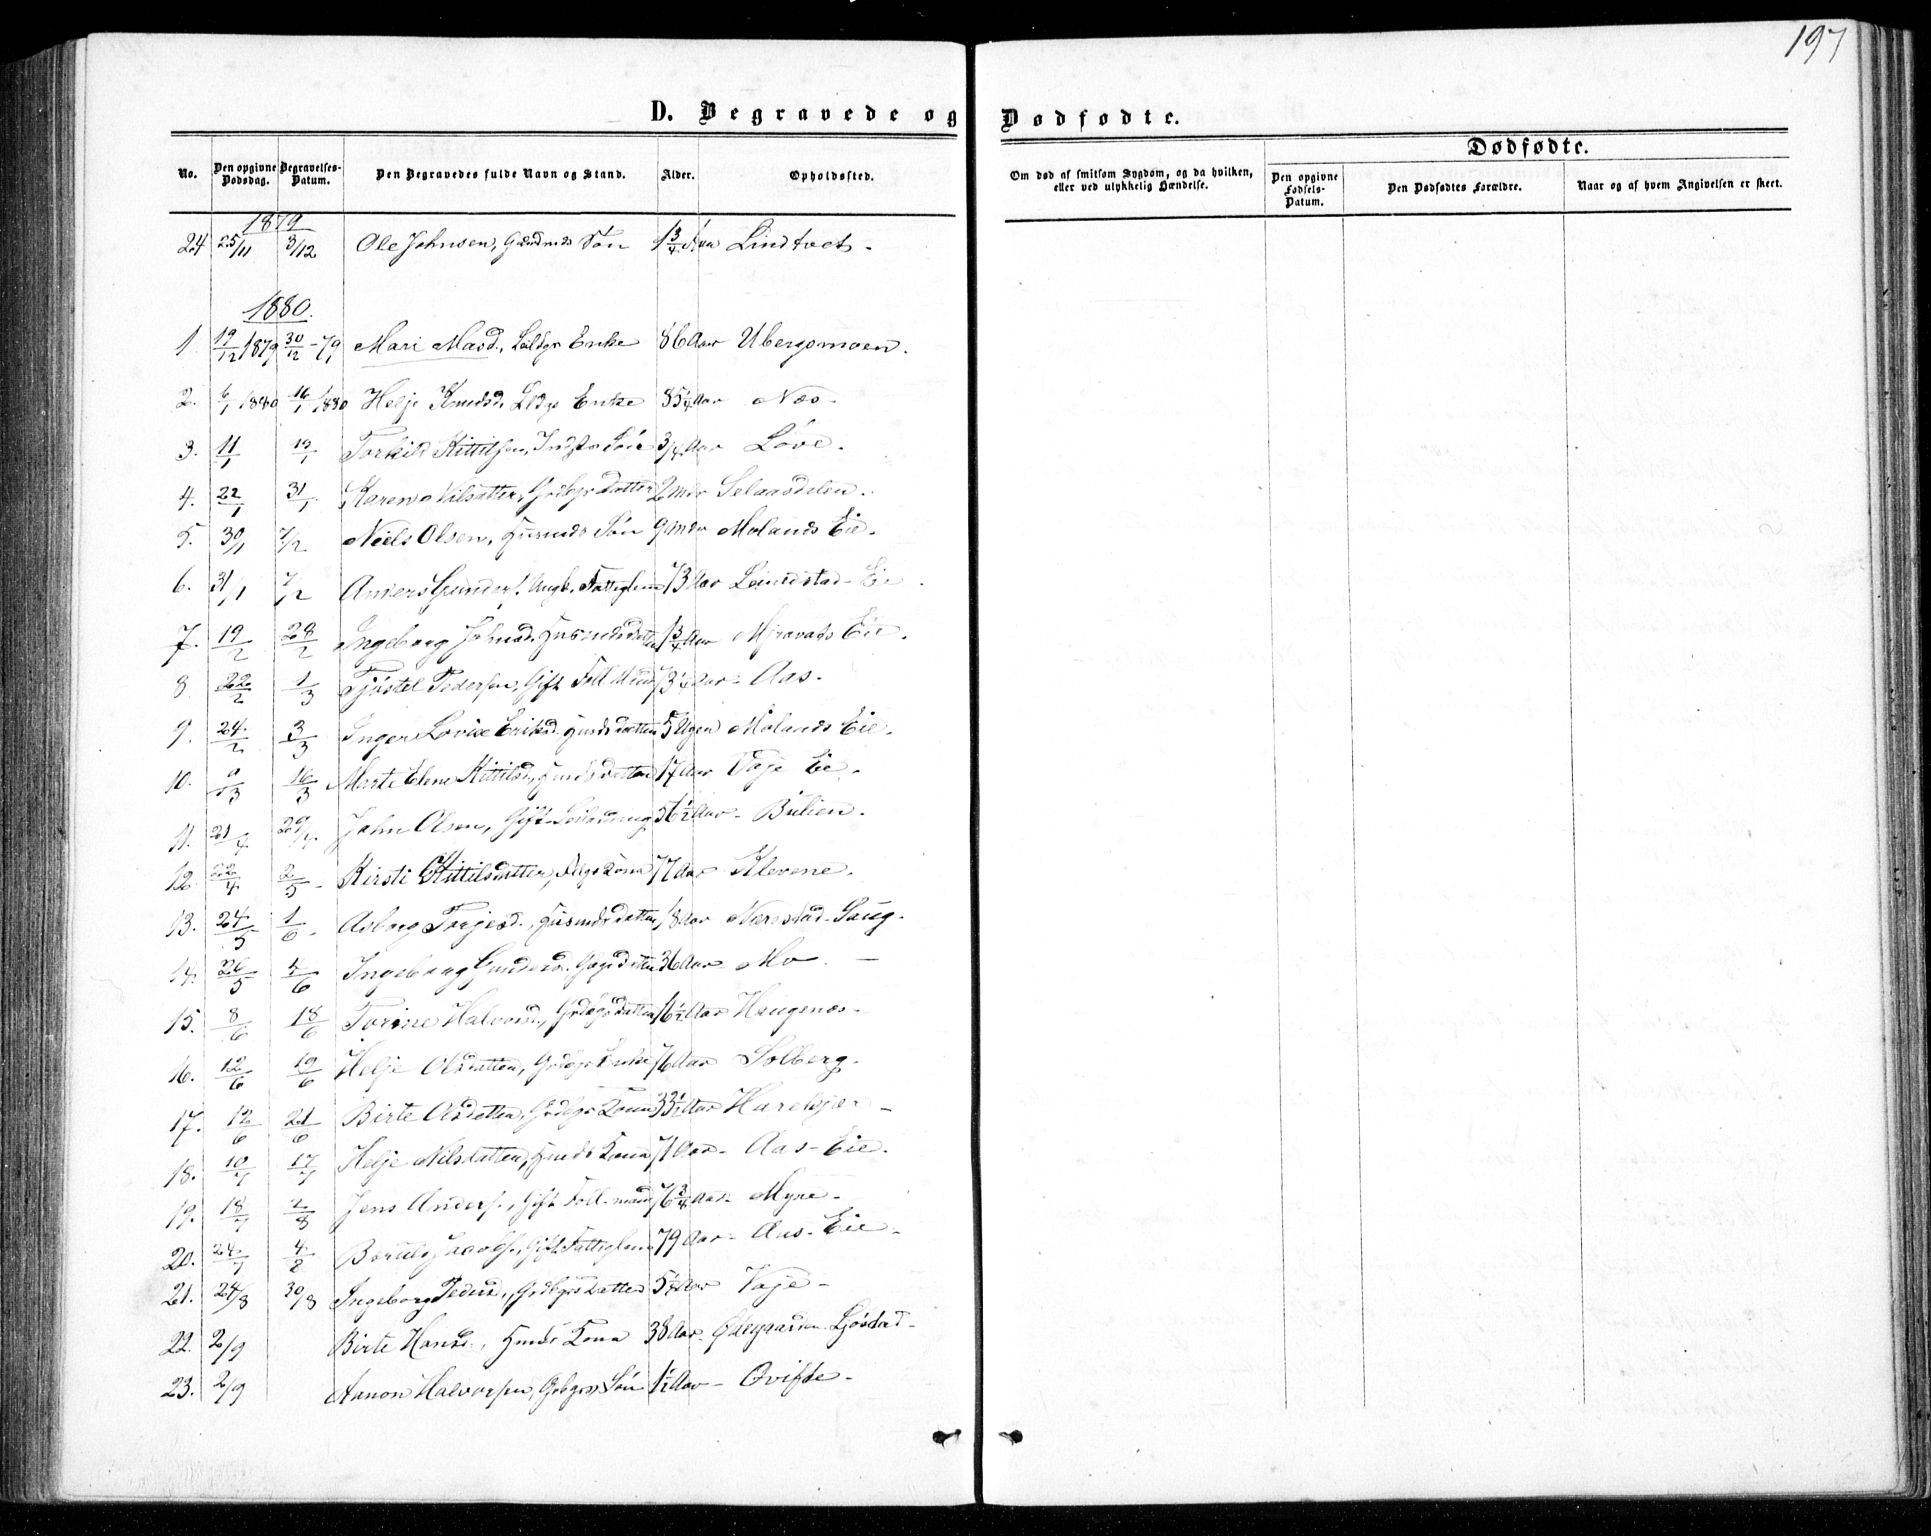 197
D. Begravede og Dødfødte.
No. Den opgivne Dødsdag. Begravelses-Datum. Den Begravedes fulde Navn og Stand. Alder. Opholdssted. Om død af smitsom Sygdom, og da hvilken, eller ved ulykkelig Hændelse. Dødfødte.
Den opgivne Fødsels-Datum. Den Dødfødtes Forældre. Naar og af hvem Angivelsen er skeet.
1879
24 25/11 3/12 Ole Johnsen, Søn 1 3/4 Aar Lindtvet.
1880.
1. 19/12 1879 30/12-79 Mari Enke 86 Aar Ubergsmoen.
2. 6/1 1880 16/1 1880 Helje Knudsd. Enke 85 1/4 Aar Næs.
3. 11/1 19/1 Torkild Kittilsen, Søn 3/4 Aar Løve.
4. 22/1 31/1 Karen Nilsdatter, Gdbgs Datter 2 Selaasdelen.
5. 30/1 7/2 Niels Olsen, Husmds Søn 9 Mdr Molands Eie.
6. 31/1 7/2 Anders Gunders. Fattiglem 73 Aar Eie
7. 19/2 28/2 Ingeborg Johnsd. Husmdsdatter 1 3/4 Aar Mjravats Eie.
8. 22/2 1/3 Tjøstel Pedersen, Gift Foll Mand 73 1/4 Aar Aas.
9. 24/2 3/3 Inger Lovise Eriksd. Husmdsdatter 5 Uger Molands Eie.
10. 9/3 16/3 Marte Elene Kittilsd., Husmdsdatter 17 Aar Vaje Eie.
11. 21/4 29/4 John Olsen, Gift 56 1/2 Aar Bulien.
12. 22/4 2/5 Kirsti Kittilsdatter, Kona 77 Aar Klevene.
13. 24/5 1/6 Asborg Torjesd., Husmdsdatter 18 Aar Nærestad-Saug.
14. 26/5 4/6 Ingeborg Gundersd. datter 36 Aar Mo.
15. 8/6 18/6 Torine Halvorsd., Gdbgsdatter 16 1/2 Aar Haugenæs.
16. 12/6 19/6 Helje Olsdatter, Gdbgs Enke 76 Aar Solberg.
17. 12/6 21/6 Birte Asdatter, Gdbgs Kona 33 1/2 Aar
18. 10/7 17/7 Helje Nilsdatter, Husmds Kona 71 Aar Aas-Eie.
19. 18/7 2/8 Jens Anders., Gift Foll-mand 76 3/4 Aar Myre.
20. 24/7 4/8 Gift Fattiglem 79 Aar Aas-Eie.
21. 24/8 30/8 Ingeborg Pedersd., Gdbgsdatter Aar Vaje.
22. 2/9 Birte Hansd., Husmds Kona 38 Aar Ødegaarden Ljøstad.
23. 2/9 Aanon Halvorsen, Gdbgers Søn 1 1/2 Aar Ovifte.